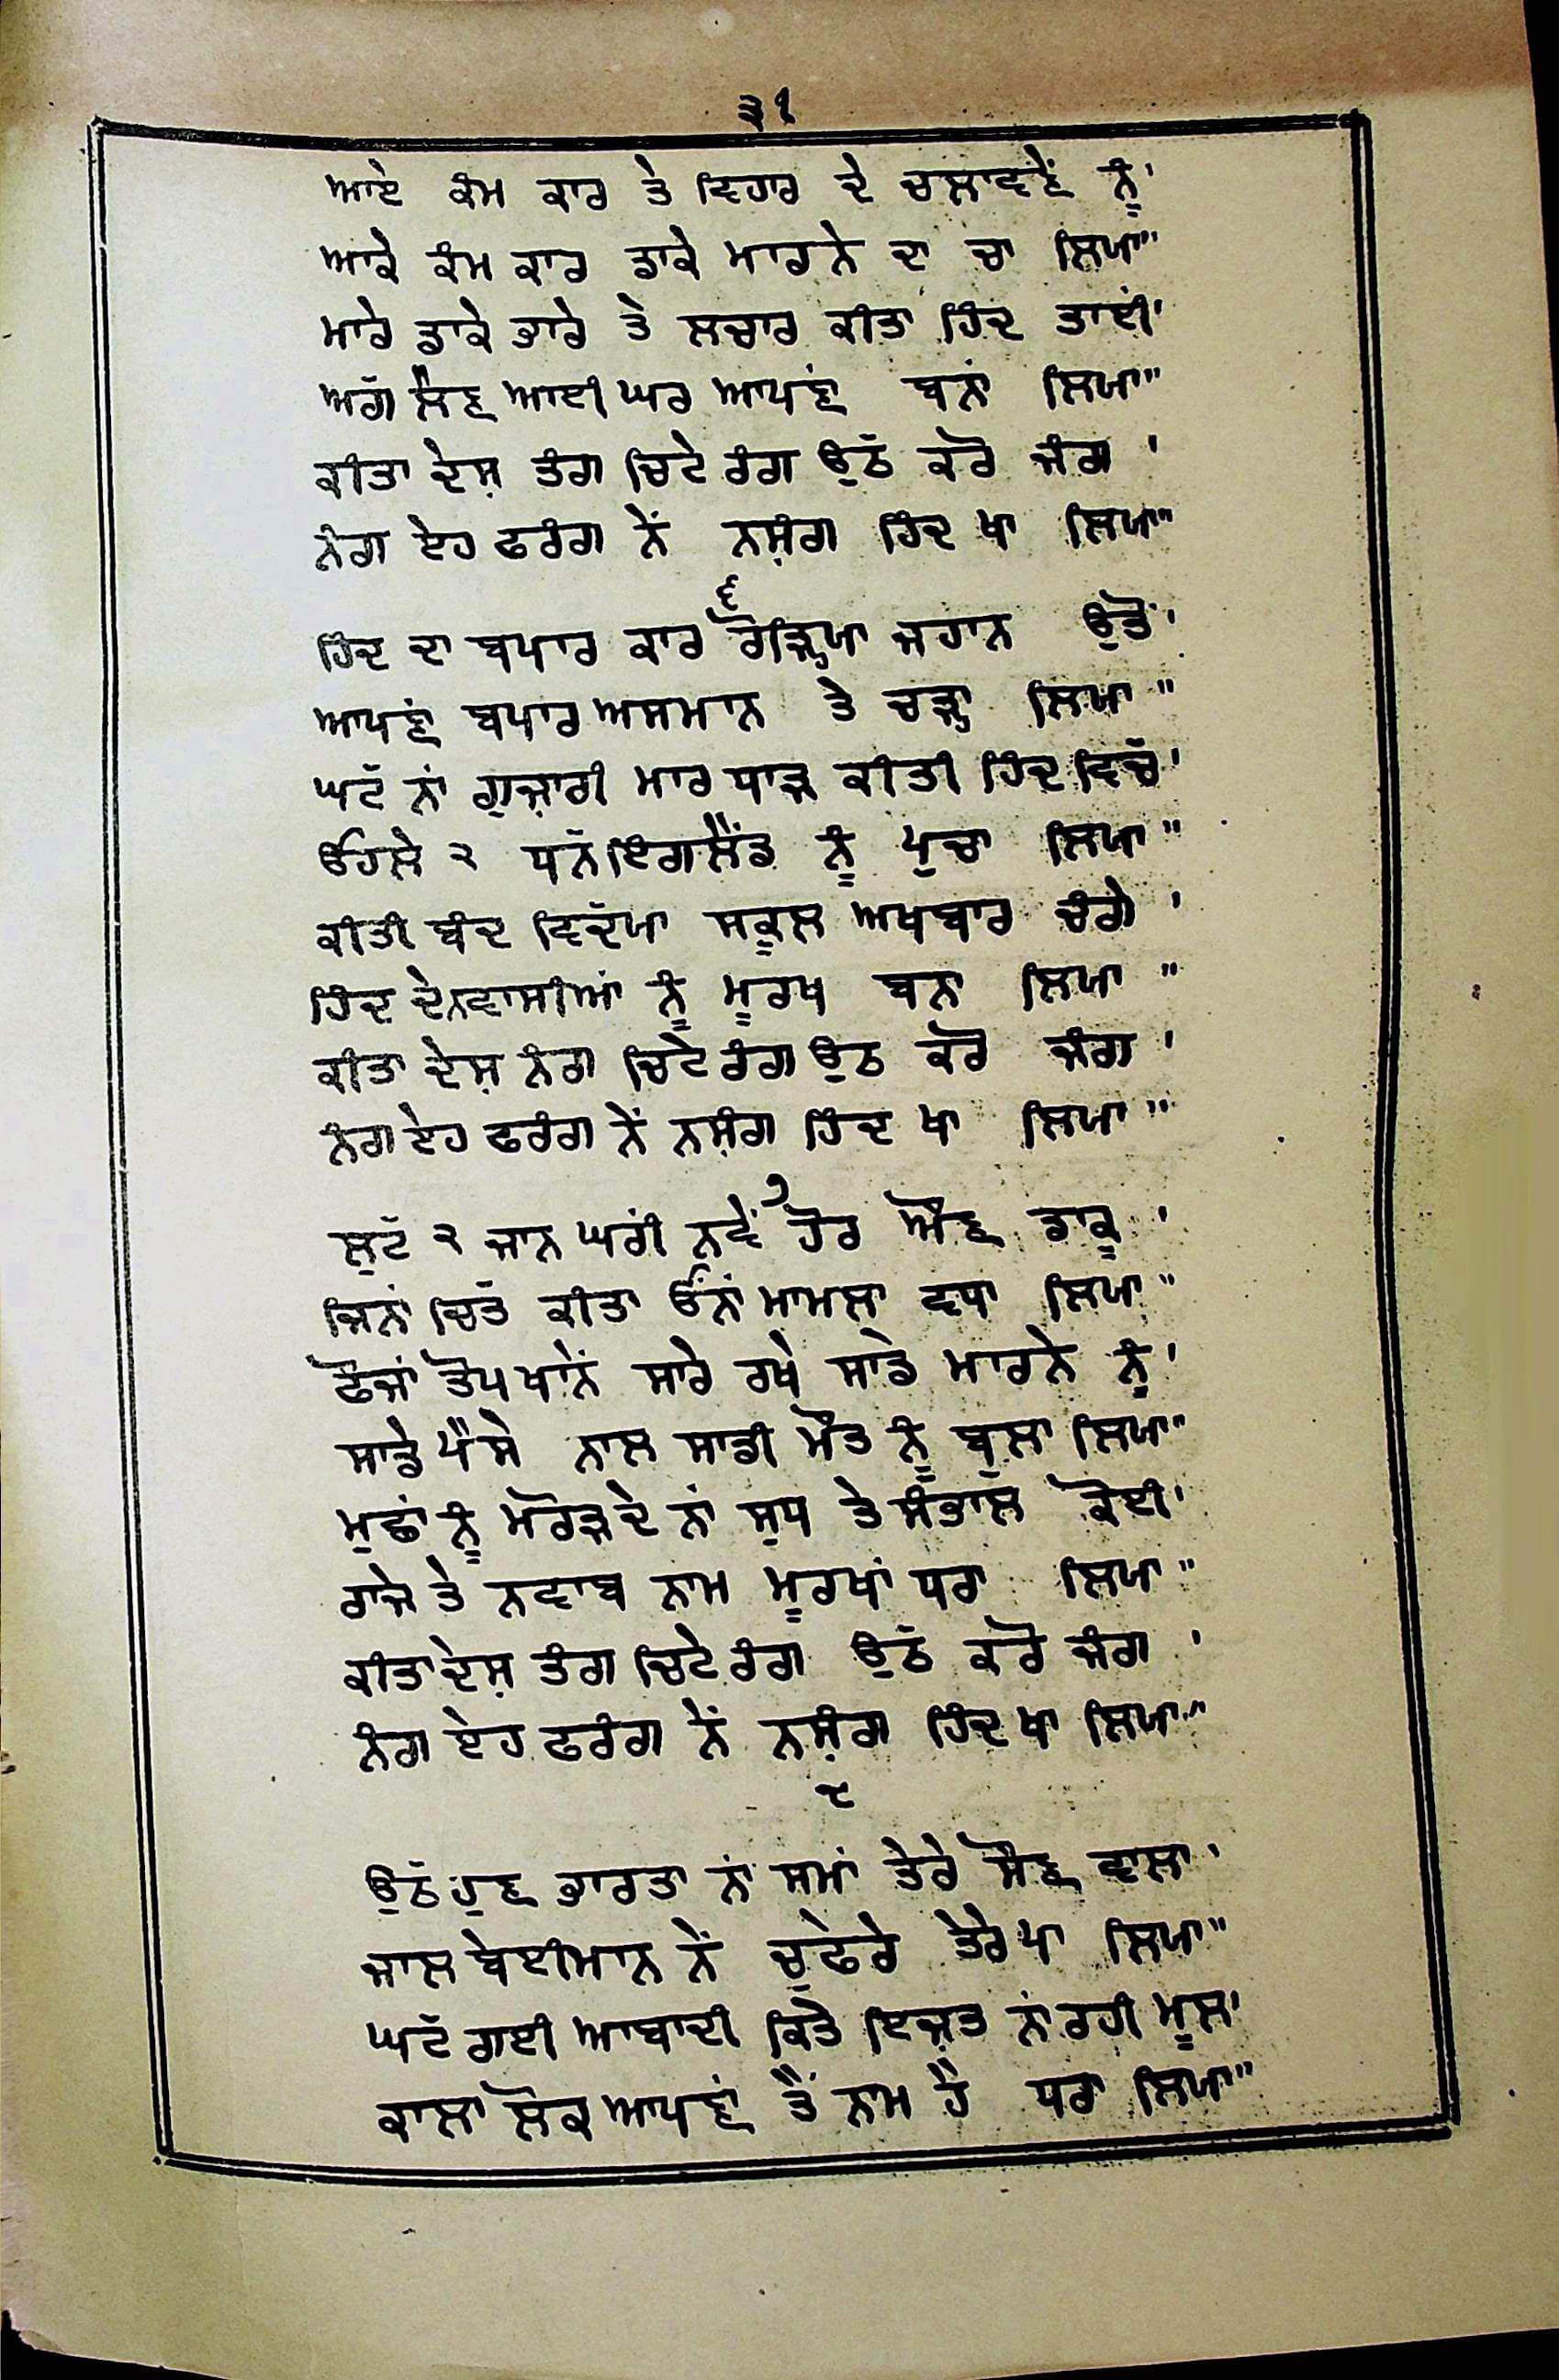 ੩੧
ਆਏ ਕੰਮ ਕਾਰ ਤੇ ਵਿਹਾਰ ਦੇ ਚਲਾਵਣੇਂ ਨੂੰ'
ਆਕੇ ਕੰਮ ਕਾਰ ਡਾਕੇ ਮਾਰਨੇ ਦਾ ਚਾ ਲਿਯਾ"
ਮਾਰੇ ਡਾਕੇ ਭਾਰੇ ਤੇ ਲਚਾਰ ਕੀਤਾ ਹਿੰਦ ਤਾਈਂ'
ਅੱਗ ਲੈਣ ਆਈ ਘਰ ਆਪਣਾਂ ਬਨਾਂ ਲਿਯਾ"
ਕੀਤਾ ਦੇਸ਼ ਤੰਗ ਚਿਟੇ ਰੰਗ ਉਠੋਂ ਕਰੋ ਜੰਗ '
ਨੰਗ ਏਹ ਫਰੰਗ ਨੇਂ ਨਸ਼ੰਗ ਹਿੰਦ ਖਾ ਲਿਯਾ"
੬
ਹਿੰਦ ਦਾ ਬਪਾਰ ਕਾਰ ਰੋੜ੍ਹਿਯਾ ਜਹਾਨ ਉਤੋਂ'
ਆਪਣਾਂ ਬਪਾਰ ਅਸਮਾਨ ਤੇ ਚੜ੍ਹਾ ਲਿਯਾ"
ਘਟੱ ਨਾਂ ਗੁਜ਼ਾਰੀ ਮਾਰ ਧਾੜ ਕੀਤੀ ਹਿੰਦ ਵਿਚੱ'
ਓਹਲੇ ੨ ਧਨੱ ਇੰਗਲੈਂਡ ਨੂੰ ਪੁਚਾ ਲਿਯਾ"
ਕੀਤੀ ਬੰਦ ਵਿਦੱਯਾ ਸਕੂਲ ਅਖਬਾਰ ਚੰਗੇ '
ਹਿੰਦ ਦੇਨਵਾਸੀਆਂ ਨੂੰ ਮੂਰਖ ਬਨਾ ਲਿਯਾ"
ਕੀਤਾ ਦੇਸ਼ ਨੰਗ ਚਿਟੇ ਰੰਗ ਉਠ ਕਰੋ ਜੰਗ '
ਨੰਗ ਏਹ ਫਰੰਗ ਨੇਂ ਨਸ਼ੰਗ ਹਿੰਦ ਖਾ ਲਿਯਾ"
੭
ਲੁਟੱ ੨ ਜਾਨ ਘਰੀਂ ਨਵੇਂ ਹੋਰ ਔਣ ਡਾਕੂ '
ਜਿਨਾਂ ਚਿਤੱ ਕੀਤਾ ਓਨਾਂ ਮਾਮਲਾ ਵਧਾ ਲਿਯਾ"
ਫੌਜਾਂ ਤੋਪਖਾਨੇਂ ਸਾਰੇ ਰਖੇ ਸਾਡੇ ਮਾਰਨੇ ਨੂੰ'
ਸਾਡੇ ਪੈਸੇ ਨਾਲ ਸਾਡੀ ਮੌਤ ਨੂੰ ਬੁਲਾ ਲਿਯਾ"
ਮੁਛਾਂ ਨੂੰ ਮਰੋੜਦੇ ਨਾਂ ਸੁਧ ਤੇ ਸੰਭਾਲ ਕੋਈ'
ਰਾਜੇ ਤੇ ਨਵਾਬ ਨਾਮ ਮੂਰਖਾਂ ਧਰਾ ਲਿਯਾ"
ਕੀਤਾ ਦੇਸ਼ ਤੰਗ ਚਿਟੇ ਰੰਗ ਉਠੱ ਕਰੋ ਜੰਗ '
ਨੰਗ ਏਹ ਫਰੰਗ ਨੇਂ ਨਸ਼ੰਗ ਹਿੰਦ ਖਾ ਲਿਯਾ"
੮
ਉਠੱ ਹੁਣ ਭਾਰਤਾ ਨਾਂ ਸਮਾਂ ਤੇਰੇ ਸੌਣ ਵਾਲਾ'
ਜਾਲ ਬੇਈਮਾਨ ਨੇਂ ਚੁਫੇਰੇ ਤੇਰੇ ਪਾ ਲਿਯਾ"
ਘਟੱ ਗਈ ਆਬਾਦੀ ਕਿਤੇ ਇਜ਼ਤ ਨਾਂ ਰਹੀ ਮੂਲ'
ਕਾਲਾ ਲੋਕ ਆਪਣਾਂ ਤੈਂ ਨਾਮ ਹੈ ਧਰਾ ਲਿਯਾ"